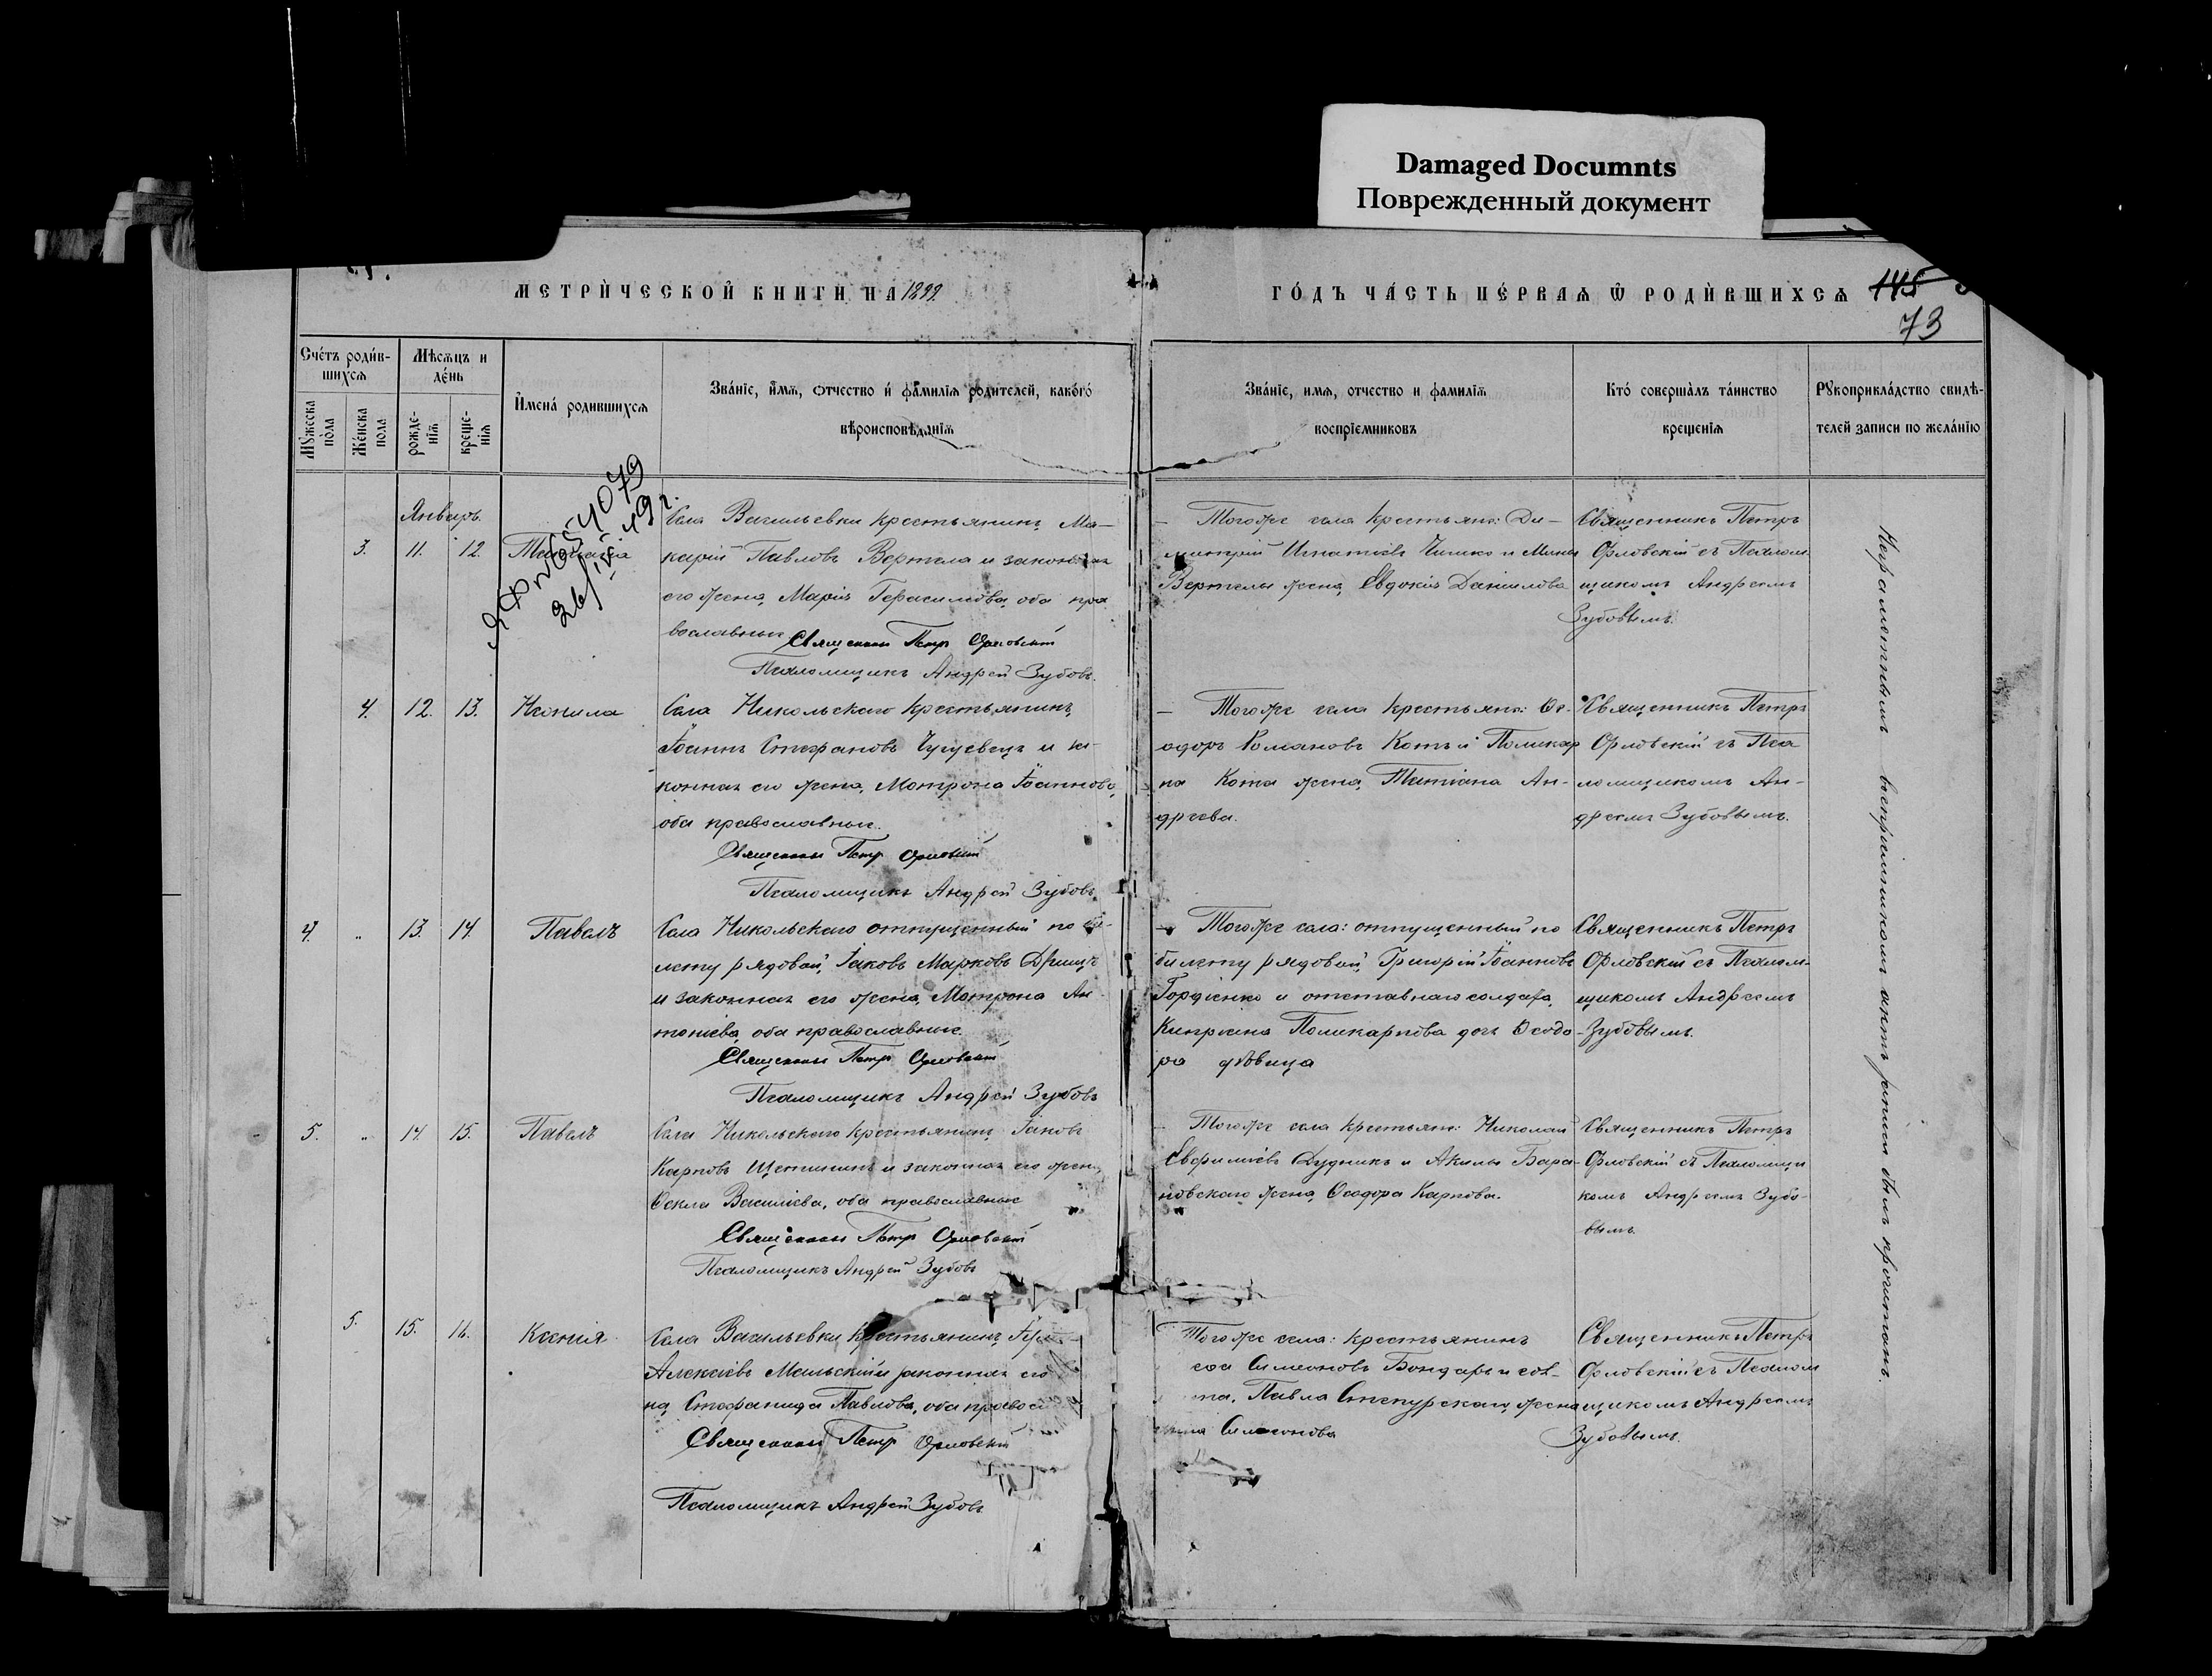 Damaged Documnts
Поврежденный документ
МЕТРИ́ЧЕСКОЙ КНИГИ НА 1899.
ГО́ДЪ ЧА́СТЬ ПЕ́РВАЯ Ѿ РОДИ́ВШИХСѦ
145
73
Сче́тъ роди́в-
шихсѧ
Мѣсѧцъ и
де́нь
Мꙋжеска
по́ла
Же́нска
пола
рожде-
нїѧ
креще-
нїѧ
И҆мена́ родившихсѧ
Зва́нїе, и҆мѧ, ѻтчество и҆ фами́лїѧ родителей, како́гѡ
вѣроисповѣданїѧ
Зва́нїе, имѧ, отчество и фамилїѧ
воспрїемниковъ
Кто́ соверша̀лъ та́инство
крещенїѧ
Рꙋкоприкла́дство свидѣ-
телей записи по жела́нїю
Январь.
3. 11. 12.
Села Васильевки крестьянинъ Ма-
карій Павловъ Вертела и законная
его жена, Марія Герасимова, оба пра
вославные
Священникъ Петр Орловскій
Псаломщикъ Андрей Зубовъ.
— Тогоже села крестьяне: Ди-
митрій Игнатіевъ Чишко и Мины
Вертелы жена, Евдокія Даніилова
Священникъ Петръ
Орловскій съ Псалом
щикомъ Андреемъ
Зубовымъ.
4. 12. 13. Неонила
Села Никольскаго крестьянинъ,
Іоаннъ Стефановъ Чугуевецъ и за-
конная его жена, Мотрона Іоаннова,
оба православные.
Священникъ Петр Орловскій
Псаломщикъ Андрей Зубовъ.
— Тогоже села крестьяне: Ѳе-
одоръ Романовъ Котъ и Поликар
па Кота жена, Татіана Ан-
дреева.
Священникъ Петръ
Орловскій съ Пса
ломщикомъ Ан-
дреемъ Зубовымъ.
4. „ 13. 14. Павелъ
Села Никольскаго отпущенный по би-
лету рядовой, Іаковъ Марковъ Дрищъ
и законная его жена, Мотрона Ан-
тоніева, оба православные
Священникъ Петр Орловскій
Псаломщикъ Андрей Зубовъ
— Тогоже села: отпущенный по
билету рядовой, Григорій Іоанновъ
Гордіенко и отставнаго солдата,
Кипріана Поликарпова дочь Ѳеодо-
ра дѣвица
Священникъ Петръ
Орловскій съ Псалом-
щикомъ Андреемъ
Зубовымъ.
5. „ 14. 15. Павелъ
Села Никольскаго крестьянинъ Іаковъ
Карповъ Щетининъ и законная его жена,
Ѳекла Васильева, оба православные
Священникъ Петр Орловскій
Псаломщикъ Андрей Зубовъ
— Тогоже села крестьяне: Николай
Евфиміевъ Дудникъ и Акилы Бара-
новскаго жена, Ѳеодора Карпова.
Священникъ Петръ
Орловскій съ Псаломщи
комъ Андреемъ Зубо-
вымъ.
5. 15. 16. Ксенія
Села Васильевки крестьянинъ
Алексіевъ Мельскій и законная его
на Стефанида Павлова, оба правос
Священникъ Петр Орловскій
Псаломщикъ Андрей Зубовъ
Тогоже села: крестьянинъ
Симеоновъ Бондарь и
Павла Степурскаго жена
Симеонова
Священникъ Петръ
Орловскій съ Псалом
щикомъ Андреемъ
Зубовымъ.
Неграмотнымъ воспріемникомъ актъ записи былъ прочитанъ.